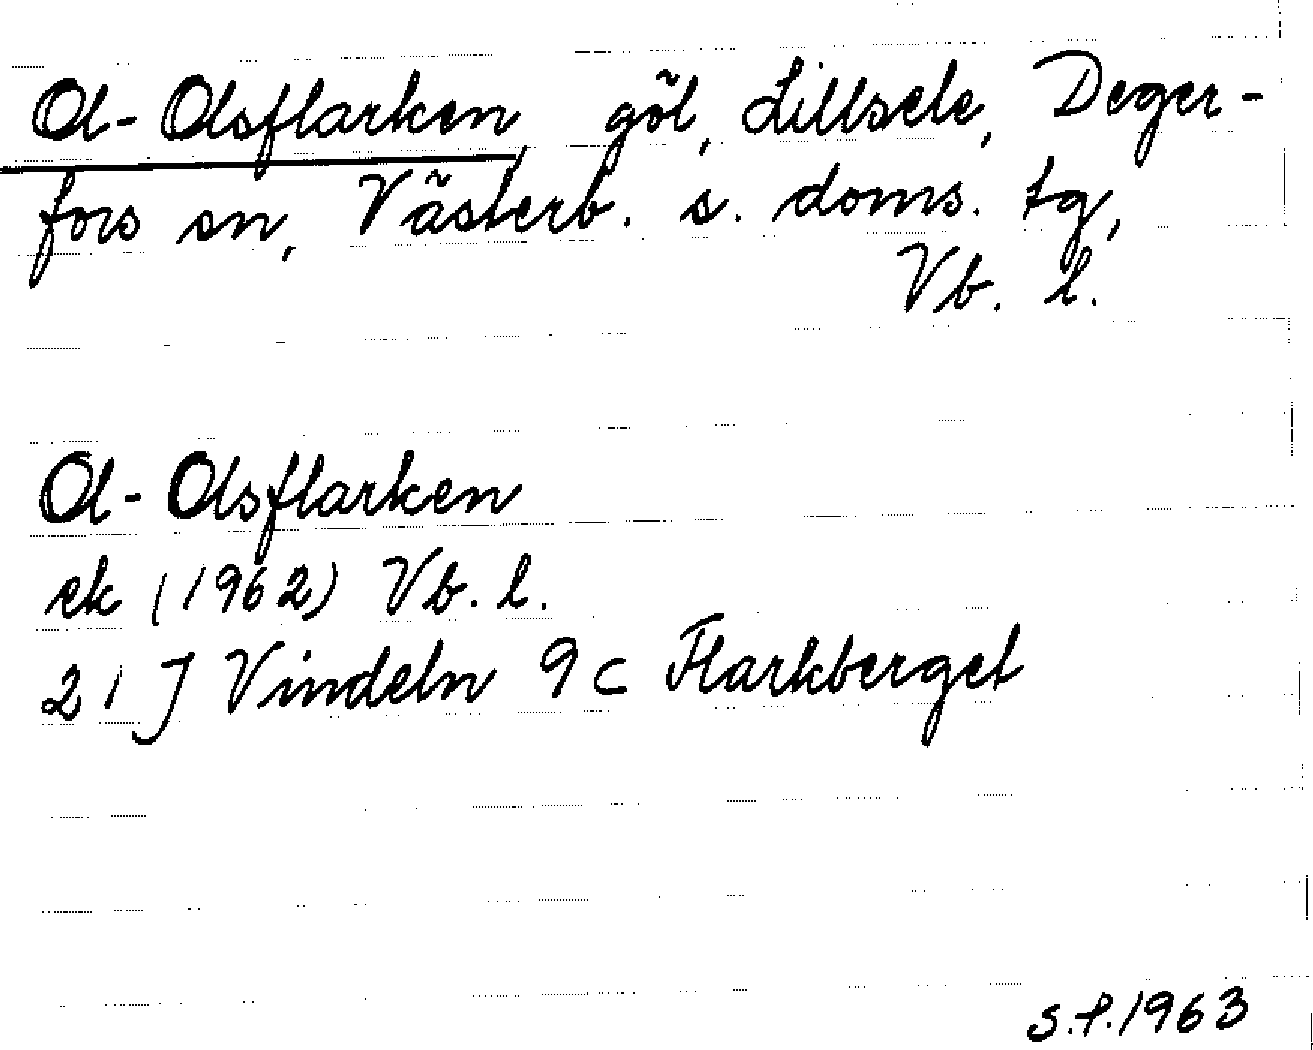 Ol-Olsflarken, göl, Lillsele, Deger-
fors sn, Västerb. s. doms. tg,
Vb. l.
Ol-Olsflarken
ek (1962) Vb. l.
21 J Vindeln 9 c Flarkberget
S.P. 1963